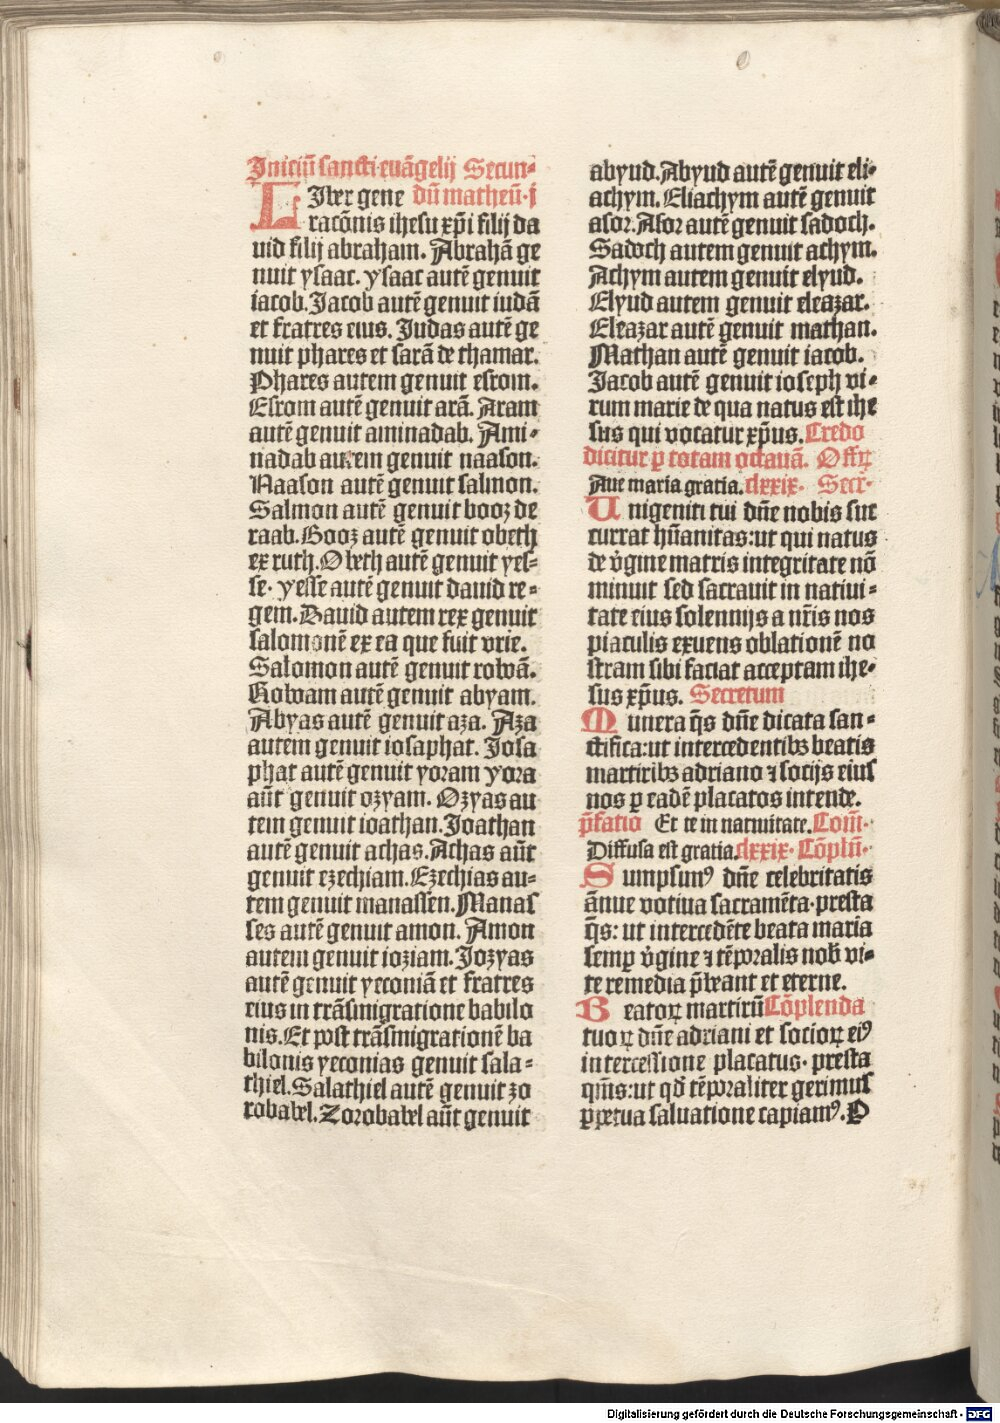 Iniciū sancti euāgelij Secun-
LIber gene dū matheū. i
racōnis ihesu xp̄i filij da
uid filij abraham. Abrahā ge
nuit ysaac. ysaac autē genuit
iacob. Jacob autē genuit iudā
et fratres eius. Judas autē ge
nuit phares et sarā de thamar.
Phares autem genuit esrom.
Esrom autē genuit arā. Aram
autē genuit aminadab. Ami-
nadab autem genuit naason.
Naason autē genuit salmon.
Salmon autē genuit booz de
raab. Booz autē genuit obeth
ex ruth. Obeth autē genuit yes-
se. yesse autē genuit dauid re-
gem. Dauid autem rex genuit
salomonē ex ea que fuit vrie.
Salomon autē genuit roboā.
Roboam autē genuit abyam.
Abyas autē genuit aza. Aza
autem genuit iosaphat. Josa
phat autē genuit yoram yora
aūt genuit ozyam. Ozyas au
tem genuit ioathan. Joathan
autē genuit achas. Achas aūt
genuit ezechiam. Ezechias au-
tem genuit manassen. Manas
ses autē genuit amon. Amon
autem genuit ioziam. Jozyas
autē genuit yeconiā et fratres
eius in trāsmigratione babilo
nis. Et post trāsmigrationē ba
bilonis yeconias genuit sala-
thiel. Salathiel autē genuit zo
robabel. Zorobabel aūt genuit
abyud. Abyud autē genuit eli-
achym. Eliachym autē genuit
asor. Asor autē genuit sadoch.
Sadoch autem genuit achym.
Achym autem genuit elyud.
Elyud autem genuit eleazar.
Eleazar autē genuit mathan.
Mathan autē genuit iacob.
Jacob autē genuit ioseph vi-
rum marie de qua natus est ihe
sus qui vocatur xp̄us. Credo
dicitur ꝑ totam octauā. Offꝝ
Aue maria gratia. clxxix. Secr̄.
Unigeniti tui dn̄e nobis suc
currat hūanitas: ut qui natus
de v̓gine matris integritate nō
minuit sed sacrauit in natiui-
tate eius solennijs a nr̄is nos
piaculis exuens oblationē no
stram sibi faciat acceptam ihe-
sus xp̄us. Secretum
Munera q̄s dn̄e dicata san-
ctifica: ut intercedentibꝫ beatis
martiribꝫ adriano ⁊ socijs eius
nos ꝑ eadē placatos intende.
p̄fatio Et te in natiuitate. Com̄.
Diffusa est gratia. clxxix. Cōplū.
Sumpsimꝰ dn̄e celebritatis
ānue votiua sacramēta. presta
q̄s: ut intercedēte beata maria
semꝑ v̓gine ⁊ tēporalis nob̄ vi-
te remedia p̄beant et eterne.
Beatoꝝ martirū Cōplenda
tuoꝝ dn̄e adriani et socioꝝ eiꝰ
intercessione placatus. presta
qm̄s: ut qd̄ tēporaliter gerimus
ꝑpetua saluatione capiamꝰ. P
Digitalisierung gefördert durch die Deutsche Forschungsgemeinschaft - DFG